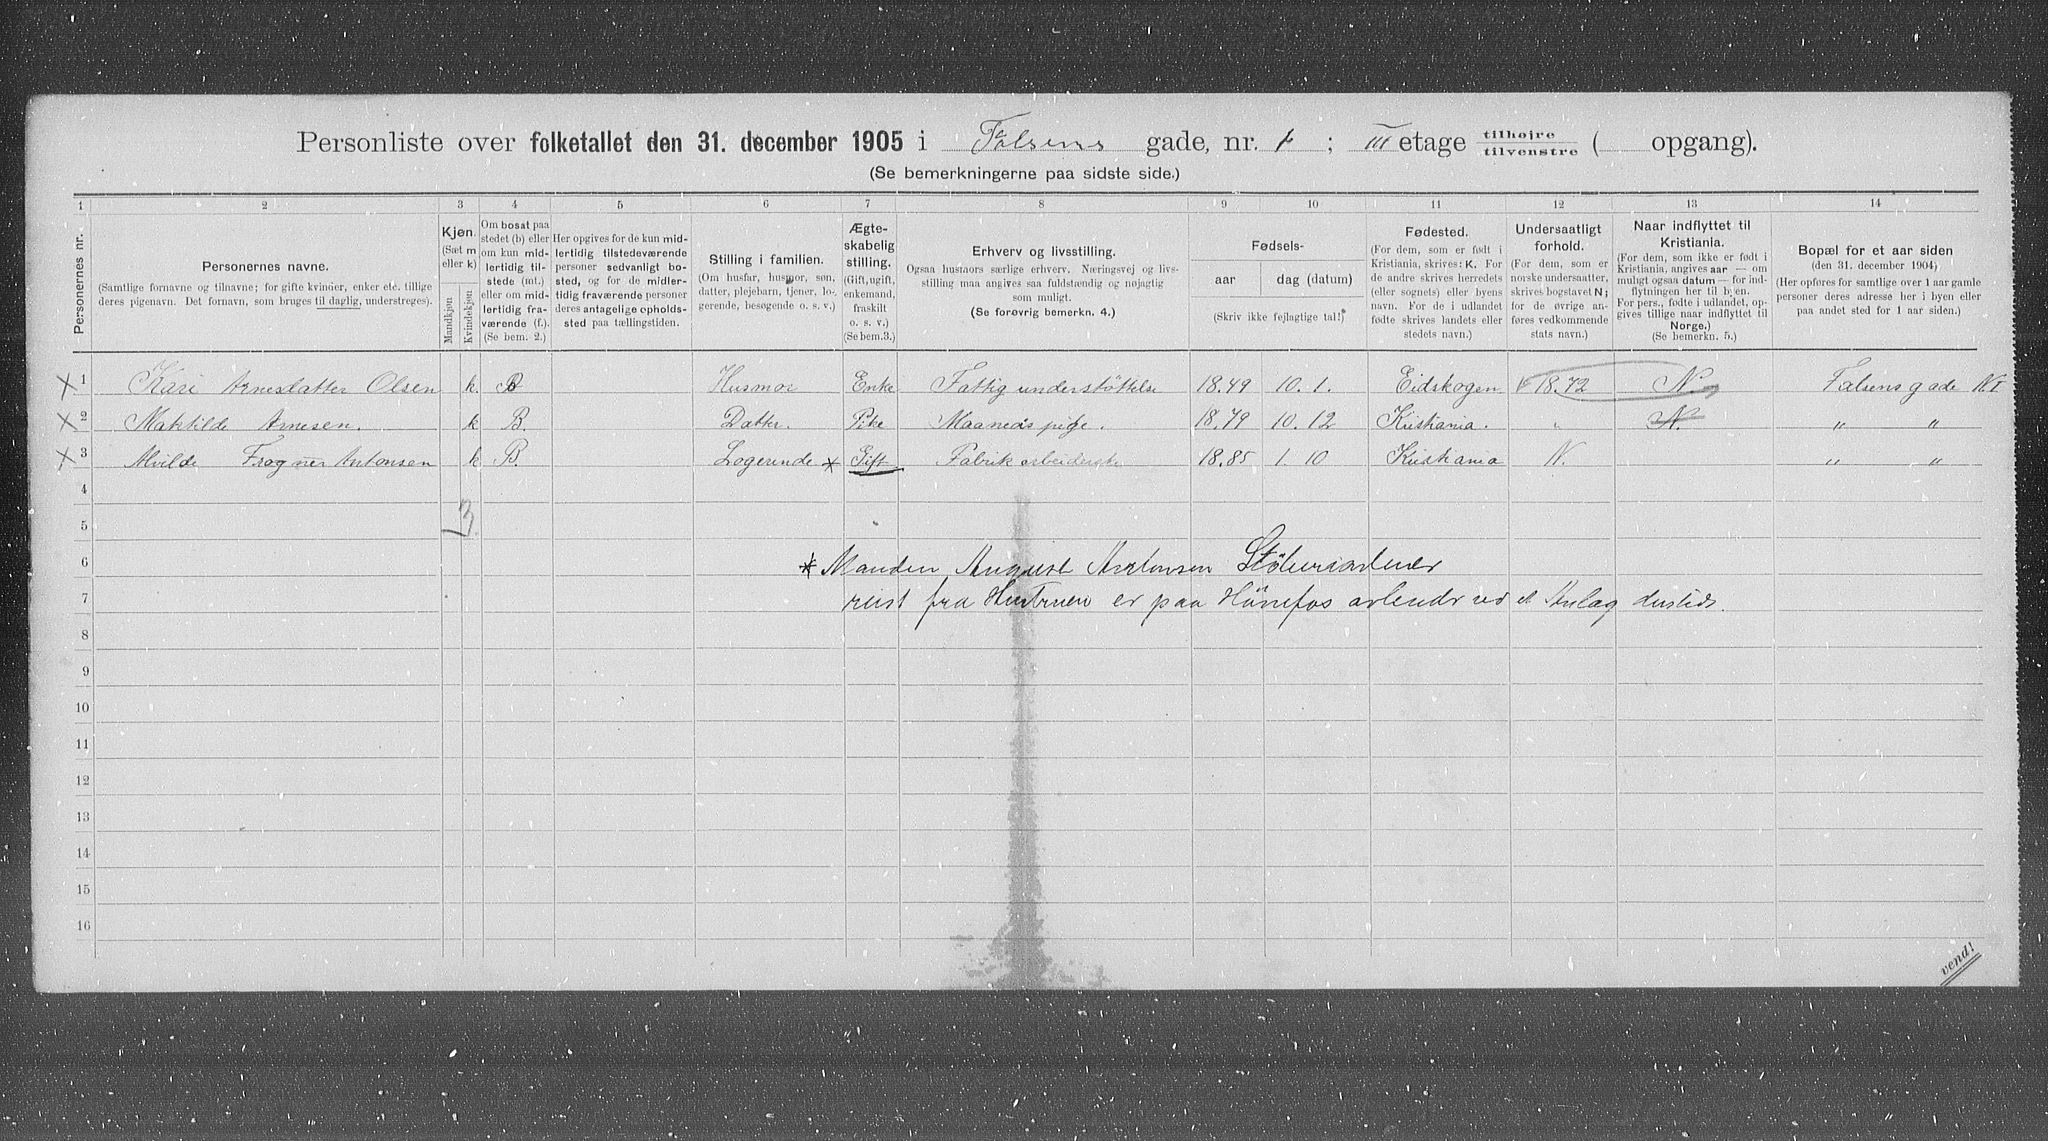 Personliste over folketallet den 31. december 1905 i Falsens gade, nr. 1 ; III etage tilhøjre tilvenstre ( opgang).
(Se bemerkningerne paa sidste side.)
1 2 3 4 5 6 7 8 9 10 11 12 13 14
Personernes nr.
Personernes navne.
(Samtlige fornavne og tilnavne; for gifte kvinder, enker etc. tillige
deres pigenavn. Det fornavn, som bruges til daglig, understreges).
Kjøn.
(Sæt m
eller k)
Mandkjøn
Kvindekjøn
Om bosat paa
stedet (b) eller
om kun mid-
lertidig til-
stede (mt.)
eller om mid-
lertidig fra-
værende (f.)
(Se bem. 2.)
Her opgives for de kun mid-
lertidig tilstedeværende
personer sedvanligt bo-
sted, og for de midler-
tidig fraværende personer
deres antagelige opholds-
sted paa tællingstiden.
Stilling i familien.
(Om husfar, husmor, søn,
datter, plejebarn, tjener, lo-
gerende, besøgende o. s. v.)
Ægte-
skabelig
stilling.
(Gift, ugift,
enkemand,
fraskilt
o. s. v.)
(Se bem.3.)
Erhverv og livsstilling.
Ogsaa husmors særlige erhverv. Næringsvej og livs-
stilling maa angives saa fuldstændig og nøjagtig
som muligt.
(Se forøvrig bemerkn. 4.)
Fødsels-
aar
dag (datum)
(Skriv ikke fejlagtige tal!)
Fødested.
(For dem, som er født i
Kristiania, skrives: K. For
de andre skrives herredets
(eller sognets) eller byens
navn. For de i udlandet
fødte skrives landets eller
stedets navn.)
Undersaatligt
forhold.
(For dem, som er
norske undersaatter,
skrives bogstavet N;
for de øvrige an-
føres vedkommende
stats navn.)
Naar indflyttet til
Kristiania.
(For dem, som ikke er født i
Kristiania, angives aar — om
muligt ogsaa datum — for ind-
flytningen her til byen.
For pers., fødte i udlandet, op-
gives tillige naar indflyttet til
Norge.)
(Se bemerkn. 5.)
Bopæl for et aar siden
(den 31. december 1904)
(Her opføres for samtlige over 1 aar gamle
personer deres adresse her i byen eller
paa andet sted for 1 aar siden.)
1 Kari Arnesdatter Olsen k. B Husmor Enke Fattig understöttelse 18.49 10.1. Eidskogen 18.72 N. Falsens gade N. I
2 Maktilde Arnesen. k B. Datter. Pike Maaneds pige. 18.79 10.12 Kristiania. " N. " "
3 Alvilde Fragner Antonsen k B. Logerende * Gift Fabrik arbeiderske 18.85 1.10 Kristiania N. " "
4
5 3
6 * Manden August Antonsen
7 reist fra Hustruen er paa Hönefos
8
9
10
11
12
13
14
15
16
vend!